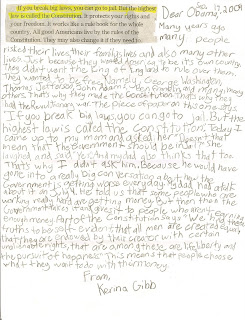 If you break laws, you can go to jail. But the highest
law is called the Constitution. It protects your rights and
your freedom. It works like a rule book for the whole
country. All good Americans live by the rules of the
Constitution. They may also change it if they need to.
Dear Obama,
Many years ago
many people
risked their lives their family lives and also many other
lives. Just because they would
They didn't want the king of England to rule over them.
they wanted to be free. Samuel, George Washington,
Thomas Jefferson, John Adam's Ben Franklin and many many
others. That's why they made the Constitution. That's why they
had the Revolutionary war. The piece of paper on this one. It says
"If you break big laws, you can go to jail. But the
highest law is called the constitution." Today I
came up to my mom and asked her "Doesn't that
mean that the Government should be in jail?" She
laughed and said "Yes." And my dad also thinks that too.
That's why I didn't ask him. Because he would have
gone into a really big conversation about how the
Government is nothing worse everyday. My dad has a talk
about it on
working really hard are getting money. But then the
Government takes it and gives it to people who aren't earning
enough money. Part of the Constitution says "We hold these
truths to be self evident that all men are created equal
that they are endowed by their creator with certain
unalienable rights, that are among these are life liberty and
the pursuit of happiness" This means that people choose
what they want to do with their money.
From,
Kerina Gibb